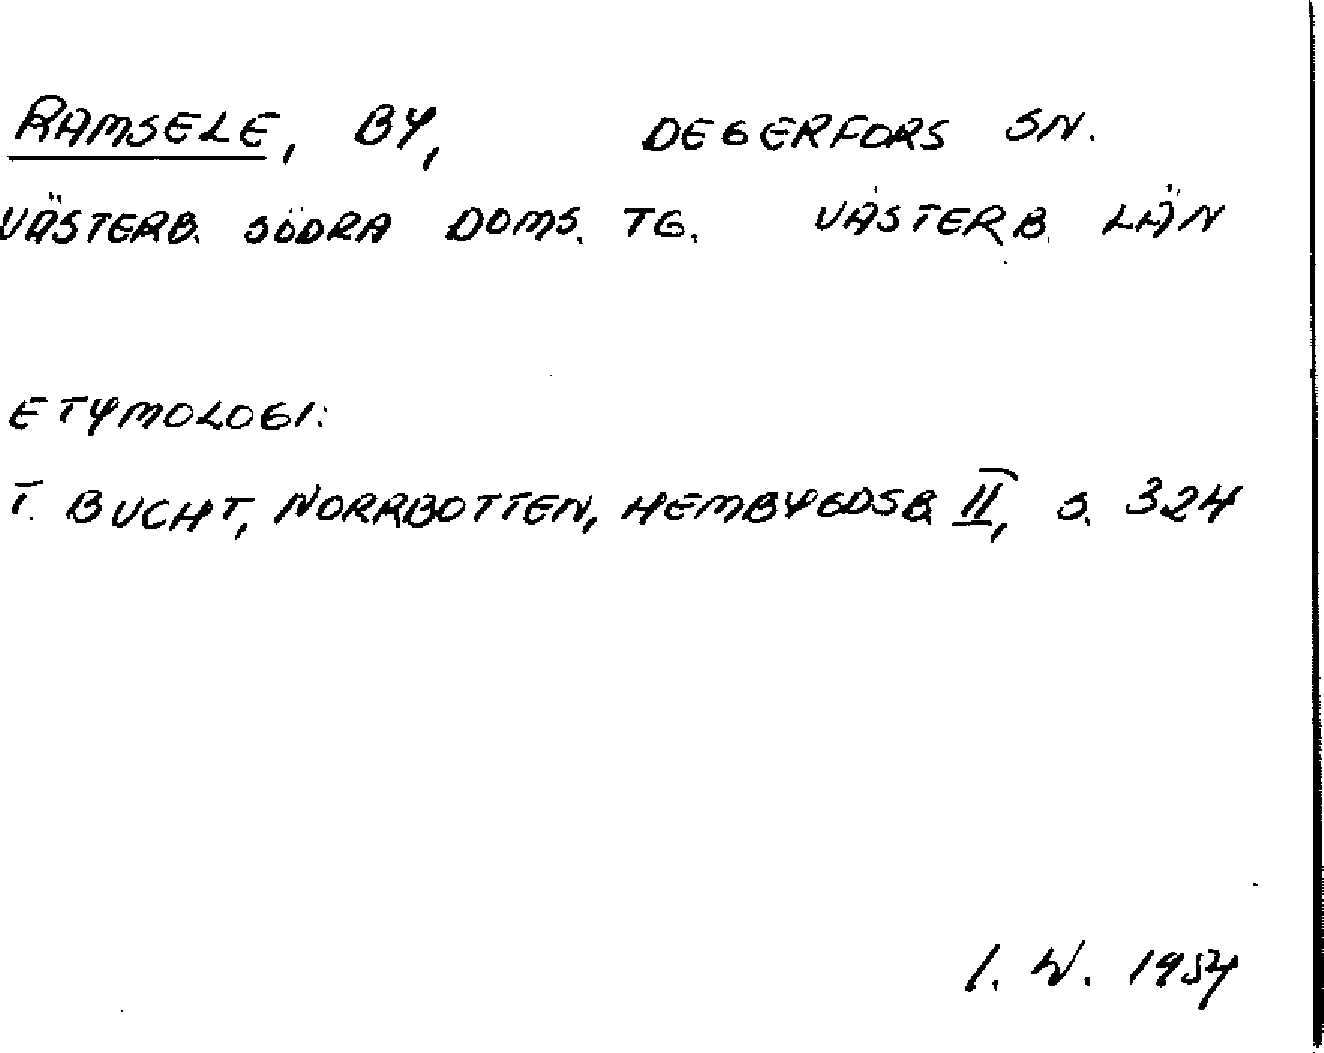 RAMSELE, BY, DEGERFORS SN.
VÄSTERB. SÖDRA DOMS. TG. VÄSTERB. LÄN
ETYMOLOGI:
T. BUCHT, NORRBOTTEN, HEMBYGDSB. II, S. 324
I. W. 1954